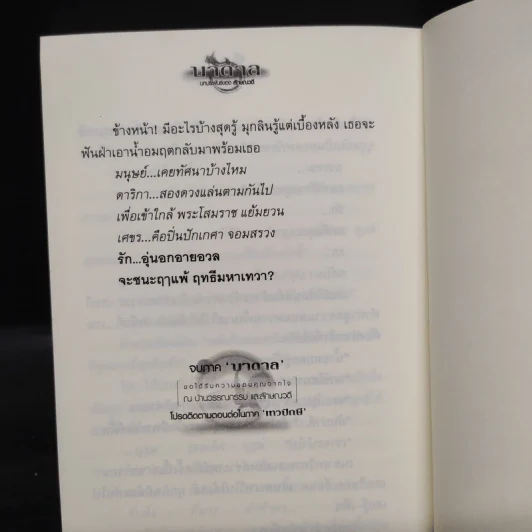 บาดาล
บทประพันธ์ของ ลักษณวดี
ข้างหน้า! มีอะไรบ้างสุดรู้ มุกลินรู้แต่เบื้องหลัง เธอจะ
ฟันฝ่าเอาน้ำอมฤตกลับมาพร้อมเธอ
มนุษย์...เคยทัศนาบ้างไหม
ดาริกา...สองดวงแล่นตามกันไป
เพื่อเข้าใกล้ พระโสมราช แย้มยวน
เศขร...คือปิ่นปักเกศา จอมสรวง
รัก...อุ่นอกอายอวล
จะชนะฤๅแพ้ ฤทธีมหาเทวา?
จบภาค 'บาดาล'
ขอได้รับความขอบคุณจากใจ
ณ บ้านวรรณกรรม และลักษณวดี
โปรดติดตามตอนต่อในภาค 'เทวปักษี'